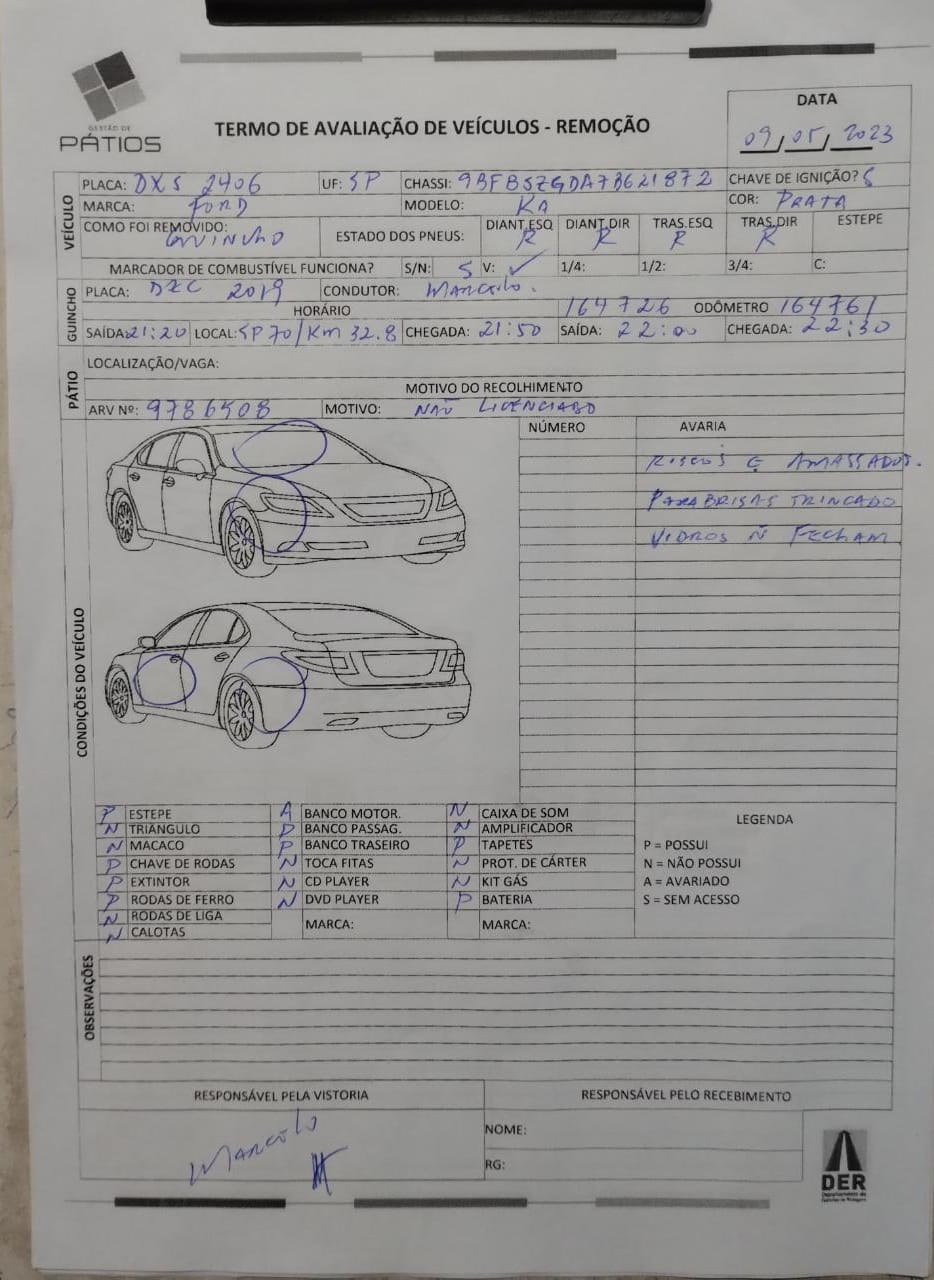 GESTÃO DE
PÁTIOS
TERMO DE AVALIAÇÃO DE VEÍCULOS - REMOÇÃO
DATA
09/05/2023
VEÍCULO
PLACA: DXS 2406 UF: SP CHASSI: 9BFBSZGDA7B621872 CHAVE DE IGNIÇÃO? S
MARCA: FORD MODELO: KA COR: PRATA
COMO FOI REMOVIDO: GUINCHO ESTADO DOS PNEUS: DIANT.ESQ R DIANT.DIR R TRAS.ESQ R TRAS.DIR R ESTEPE
MARCADOR DE COMBUSTÍVEL FUNCIONA? S/N: S V: ✓ 1/4: 1/2: 3/4: C:
GUINCHO
PLACA: 2019 CONDUTOR: MARCELO.
HORÁRIO 164726 ODÔMETRO 164761
SAÍDA: 21:20 LOCAL: SP 70/KM 32.8 CHEGADA: 21:50 SAÍDA: 22:00 CHEGADA: 22:30
PÁTIO
LOCALIZAÇÃO/VAGA:
MOTIVO DO RECOLHIMENTO
ARV Nº: 9786508 MOTIVO: NÃO LICENCIADO
CONDIÇÕES DO VEÍCULO
NÚMERO AVARIA
RISCOS E AMASSADOS.
PARABRISAS TRINCADO
VIDROS Ñ FECHAM
P ESTEPE A BANCO MOTOR. N CAIXA DE SOM
N TRIÂNGULO P BANCO PASSAG. N AMPLIFICADOR
N MACACO P BANCO TRASEIRO P TAPETES
P CHAVE DE RODAS N TOCA FITAS N PROT. DE CÁRTER
P EXTINTOR N CD PLAYER N KIT GÁS
P RODAS DE FERRO N DVD PLAYER P BATERIA
N RODAS DE LIGA MARCA: MARCA:
N CALOTAS
LEGENDA
P = POSSUI
N = NÃO POSSUI
A = AVARIADO
S = SEM ACESSO
OBSERVAÇÕES
RESPONSÁVEL PELA VISTORIA RESPONSÁVEL PELO RECEBIMENTO
Marcelo
NOME:
RG:
DER